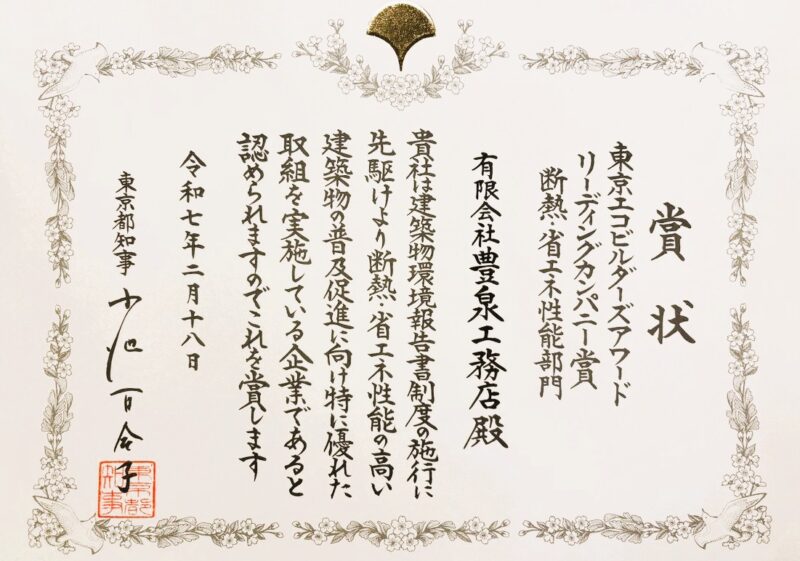 賞状
東京エコビルダーズアワード
リーディングカンパニー賞
断熱・省エネ性能部門
有限会社豊泉工務店殿
貴社は建築物環境報告書制度の施行に
先駆けより断熱・省エネ性能の高い
建築物の普及促進に向け特に優れた
取組を実施している企業であると
認められますのでこれを賞します
令和七年二月十八日
東京都知事 小池百合子
東京都知事